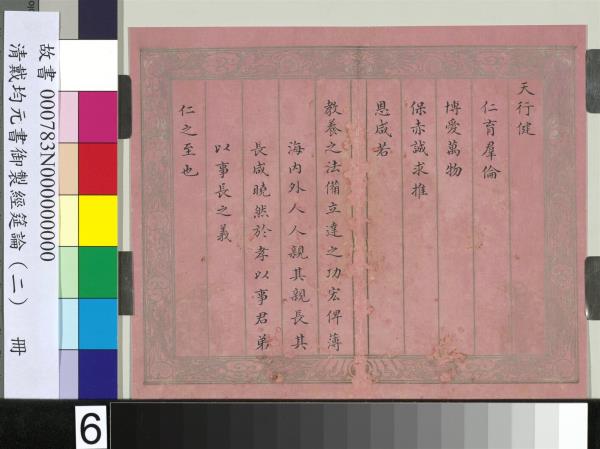 天行健
仁育羣倫
博愛萬物
保赤誠求推
恩咸若
教養之法備立達之功宏俾薄
海內外人人親其親長其
長咸曉然於孝以事君弟
以事長之義
仁之至也
故書 000783N000000000
清戴均元書御製經筵論(二) 冊
6